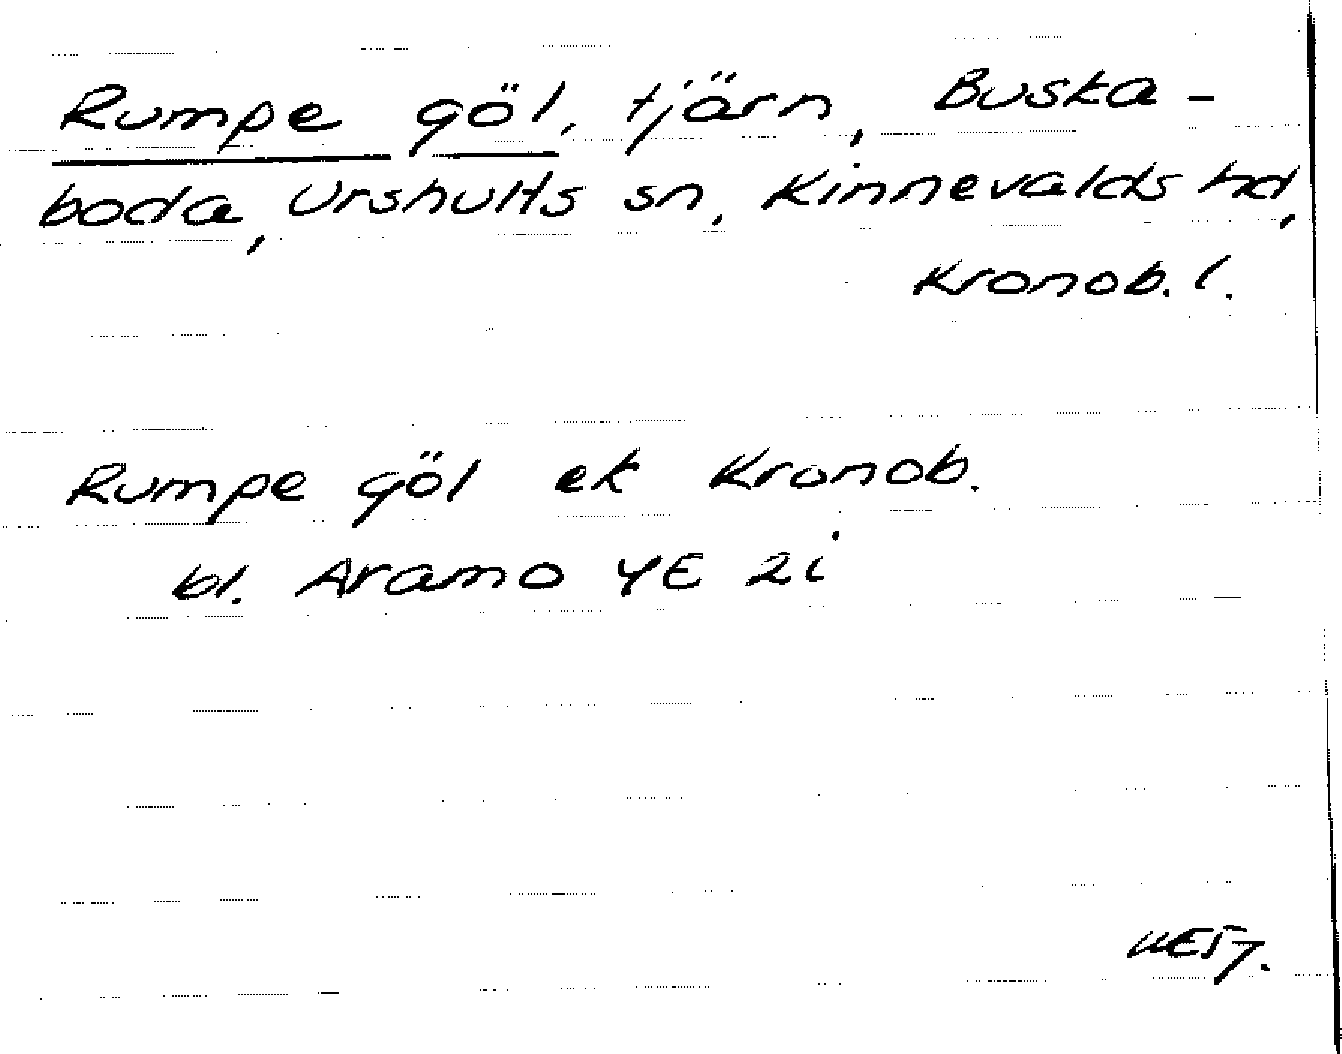 Rumpe göl, tjärn, Buska-
boda, Urshults sn, Kinnevalds hd,
Kronob. l.
Rumpe göl ek Kronob.
bl. Aramo 4E 2i